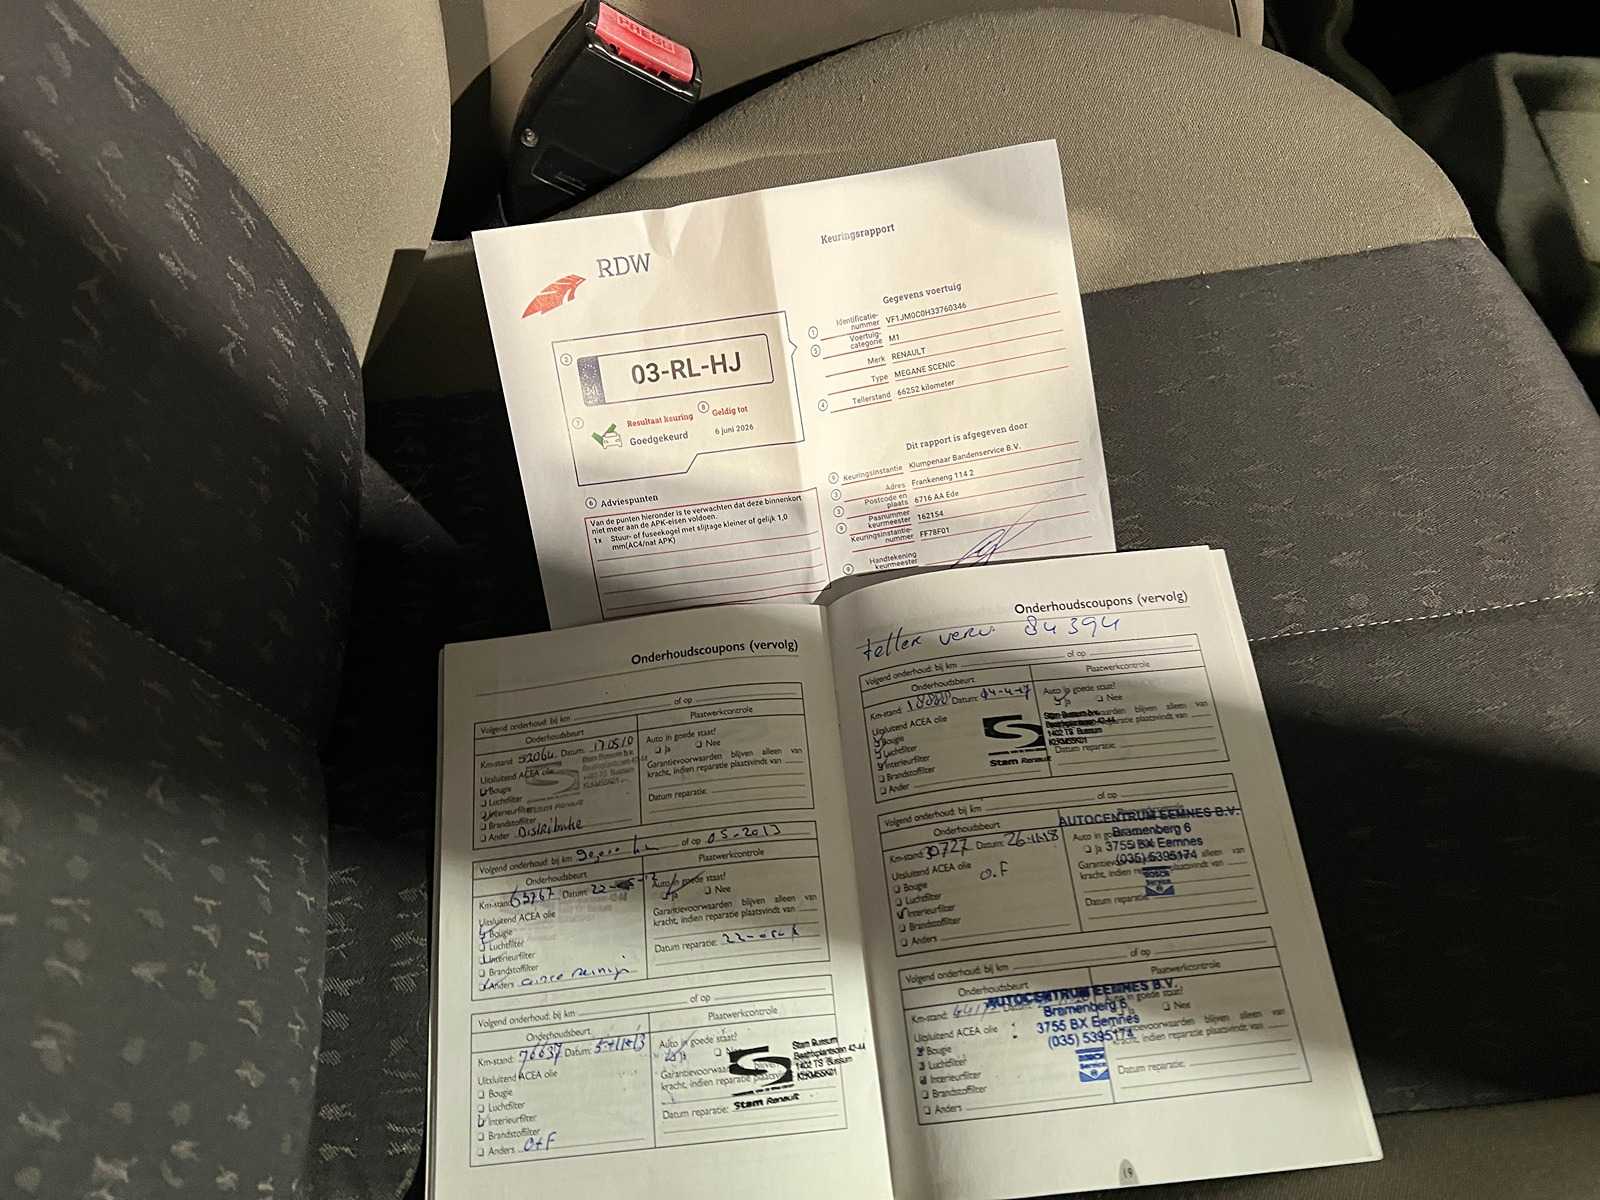 PRESS
RDW
Keuringsrapport
03-RL-HJ
7 Resultaat keuring
Goedgekeurd
8 Geldig tot
6 juni 2026
6 Adviespunten
Van de punten hieronder is te verwachten dat deze binnenkort
niet meer aan de APK-eisen voldoen.
1x Stuur- of fuseekogel met slijtage kleiner of gelijk 1,0
mm(AC4/nat APK)
Gegevens voertuig
1 Identificatie-
nummer VF1JM0C0H33760346
Voertuig-
categorie M1
Merk RENAULT
Type MEGANE SCENIC
4 Tellerstand 66252 kilometer
Dit rapport is afgegeven door
Keuringsinstantie Klumpenaar Bandenservice B.V.
Adres Frankeneng 114 2
Postcode en
plaats 6716 AA Ede
Pasnummer
keurmeester 162154
Keuringsinstantie-
nummer FF78F01
Handtekening
keurmeester
Onderhoudscoupons (vervolg)
Volgend onderhoud: bij km of op
Onderhoudsbeurt Plaatwerkcontrole
Km-stand: 52064 Datum: 170510
Auto in goede staat?
Ja Nee
Uitsluitend ACEA olie
Bougie
Luchtfilter
Interieurfilter
Brandstoffilter
Ander Distributie
Garantievoorwaarden blijven alleen van
kracht, indien reparatie plaatsvindt van
Datum reparatie:
Volgend onderhoud: bij km of op 05-2013
Onderhoudsbeurt Plaatwerkcontrole
Km-stand: 63767 Datum: 22-
Auto in goede staat?
Ja Nee
Uitsluitend ACEA olie
Bougie
Luchtfilter
Interieurfilter
Brandstoffilter
Anders airco reinig
Garantievoorwaarden blijven alleen van
kracht, indien reparatie plaatsvindt van
Datum reparatie:
Volgend onderhoud: bij km of op
Onderhoudsbeurt Plaatwerkcontrole
Km-stand: 76637 Datum: 5-11-13
Auto in goede staat?
Ja
Uitsluitend ACEA olie
Bougie
Luchtfilter
Interieurfilter
Brandstoffilter
Anders O+F
Garantievoorwaarden
kracht, indien reparatie
Datum reparatie:
Stam Bussum
1402 TS Bussum
Stam Renault
Onderhoudscoupons (vervolg)
teller verv. 84394
Volgend onderhoud: bij km of op
Onderhoudsbeurt Plaatwerkcontrole
Km-stand: 18888 Datum: 04-4-17
Auto in goede staat?
Ja Nee
Uitsluitend ACEA olie
Bougie
Luchtfilter
Interieurfilter
Brandstoffilter
Ander
Stam Bussum b.v.
1402 TS Bussum
Stam Renault
Datum reparatie:
Volgend onderhoud: bij km of op
Onderhoudsbeurt
Km-stand: 30727 Datum: 26-11-18
Uitsluitend ACEA olie
O.F
Bougie
Luchtfilter
Interieurfilter
Brandstoffilter
Anders
AUTOCENTRUM EEMNES B.V.
Bramenberg 6
3755 BX Eemnes
(035) 5395174
BOSCH
Service
Datum reparatie:
Volgend onderhoud: bij km of op
Onderhoudsbeurt Plaatwerkcontrole
Km-stand:
Uitsluitend ACEA olie
Bougie
Luchtfilter
Interieurfilter
Brandstoffilter
Anders
AUTOCENTRUM EEMNES B.V.
Bramenberg 6
3755 BX Eemnes
(035) 5395174
BOSCH
Service
Nee
Datum reparatie:
19